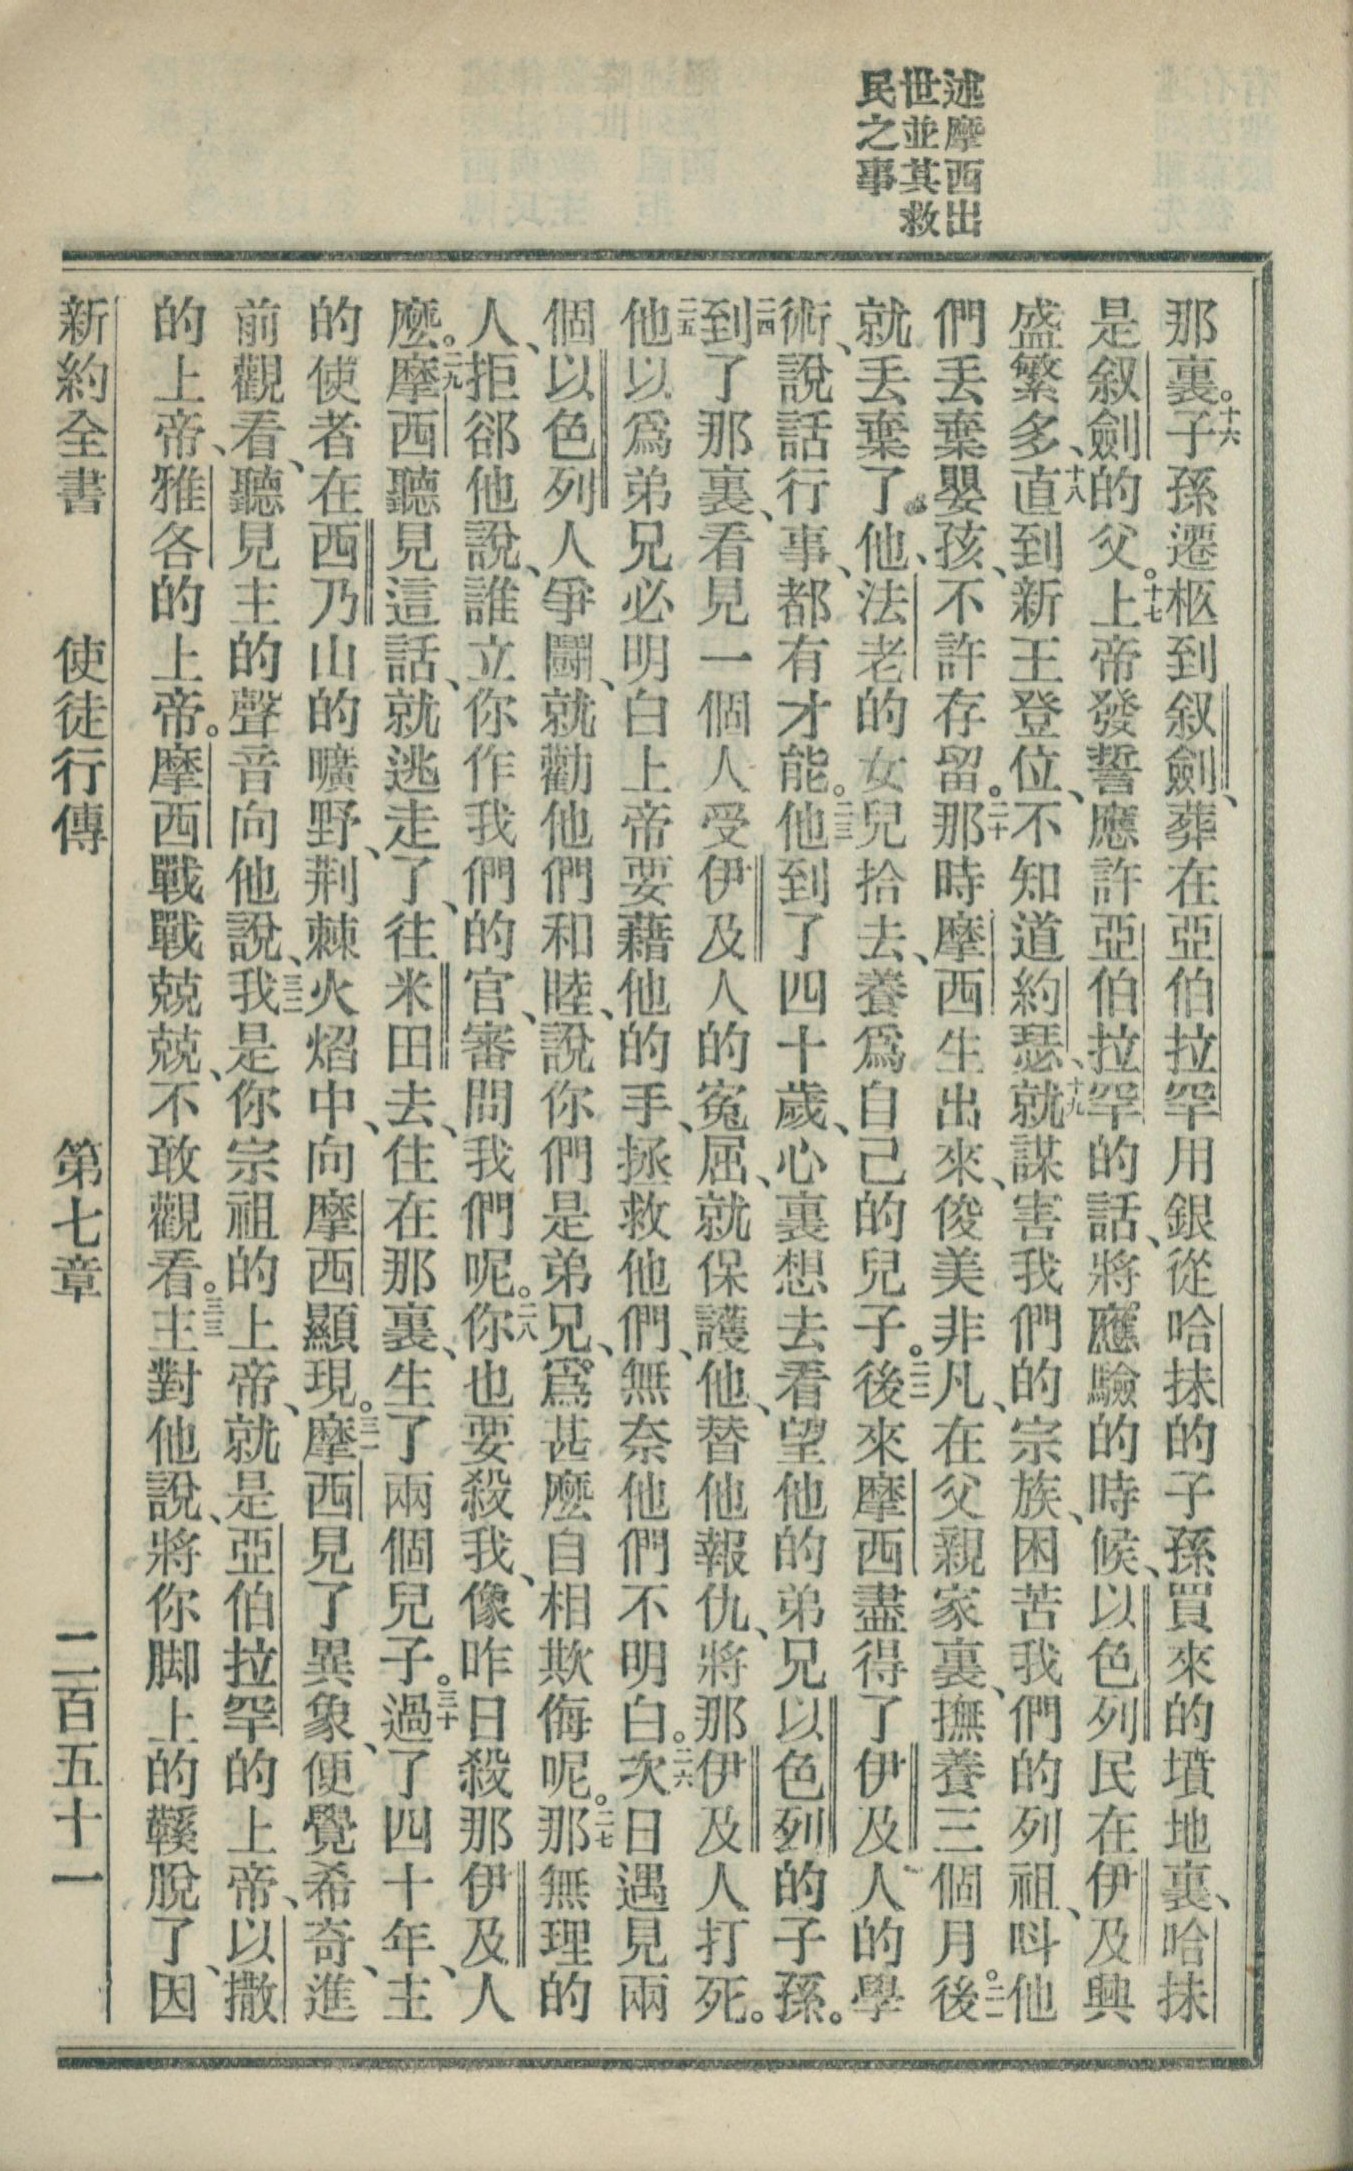 述摩西出
世並其救
民之事
那裏。十六子孫遷柩到叙劍、葬在亞伯拉罕用銀從哈抹的子孫買來的墳地裏、哈抹
是叙劍的父。十七上帝發誓應許亞伯拉罕的話、將應驗的時候、以色列民在伊及興
盛繁多、十八直到新王登位、不知道約瑟、十九就謀害我們的宗族、困苦我們的列祖、呌他
們丟棄嬰孩、不許存留。二十那時摩西生出來、俊美非凡、在父親家裏、撫養三個月。二一後
就丟棄了他、法老的女兒拾去、養爲自己的兒子。二二後來摩西盡得了伊及人的學
術、說話行事、都有才能。二三他到了四十歲、心裏想去看望他的弟兄以色列的子孫。
二四到了那裏、看見一個人受伊及人的寃屈、就保護他、替他報仇、將那伊及人打死。
二五他以爲弟兄必明白上帝要藉他的手、拯救他們、無奈他們不明白。二六次日遇見兩
個以色列人爭鬪、就勸他們和睦、說你們是弟兄、爲甚麽自相欺侮呢。二七那無理的
人、拒郤他說、誰立你作我們的官、審問我們呢。二八你也要殺我、像昨日殺那伊及人
麽。二九摩西聽見這話、就逃走了、往米田去、住在那裏、生了兩個兒子。三十過了四十年、主
的使者在西乃山的曠野、荆棘火熖中、向摩西顯現。三一摩西見了異象、便覺希奇、進
前觀看、聽見主的聲音向他說、三二我是你宗祖的上帝、就是亞伯拉罕的上帝、以撒
的上帝、雅各的上帝。摩西戰戰兢兢、不敢觀看。三三主對他說、將你脚上的鞵脫了、因
新約全書 使徒行傳 第七章 二百五十一